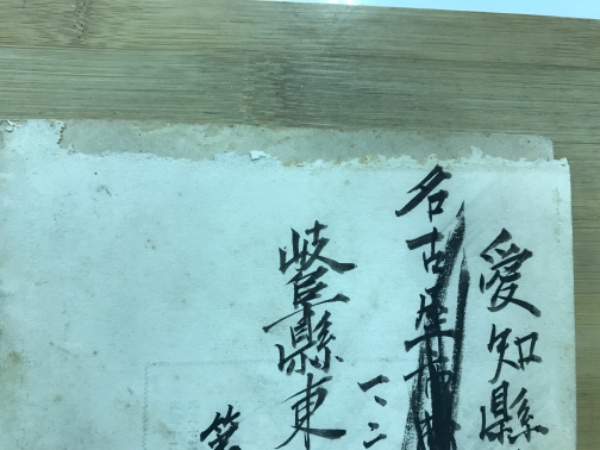 愛知縣
名古屋市
一、二
岐阜縣東
第